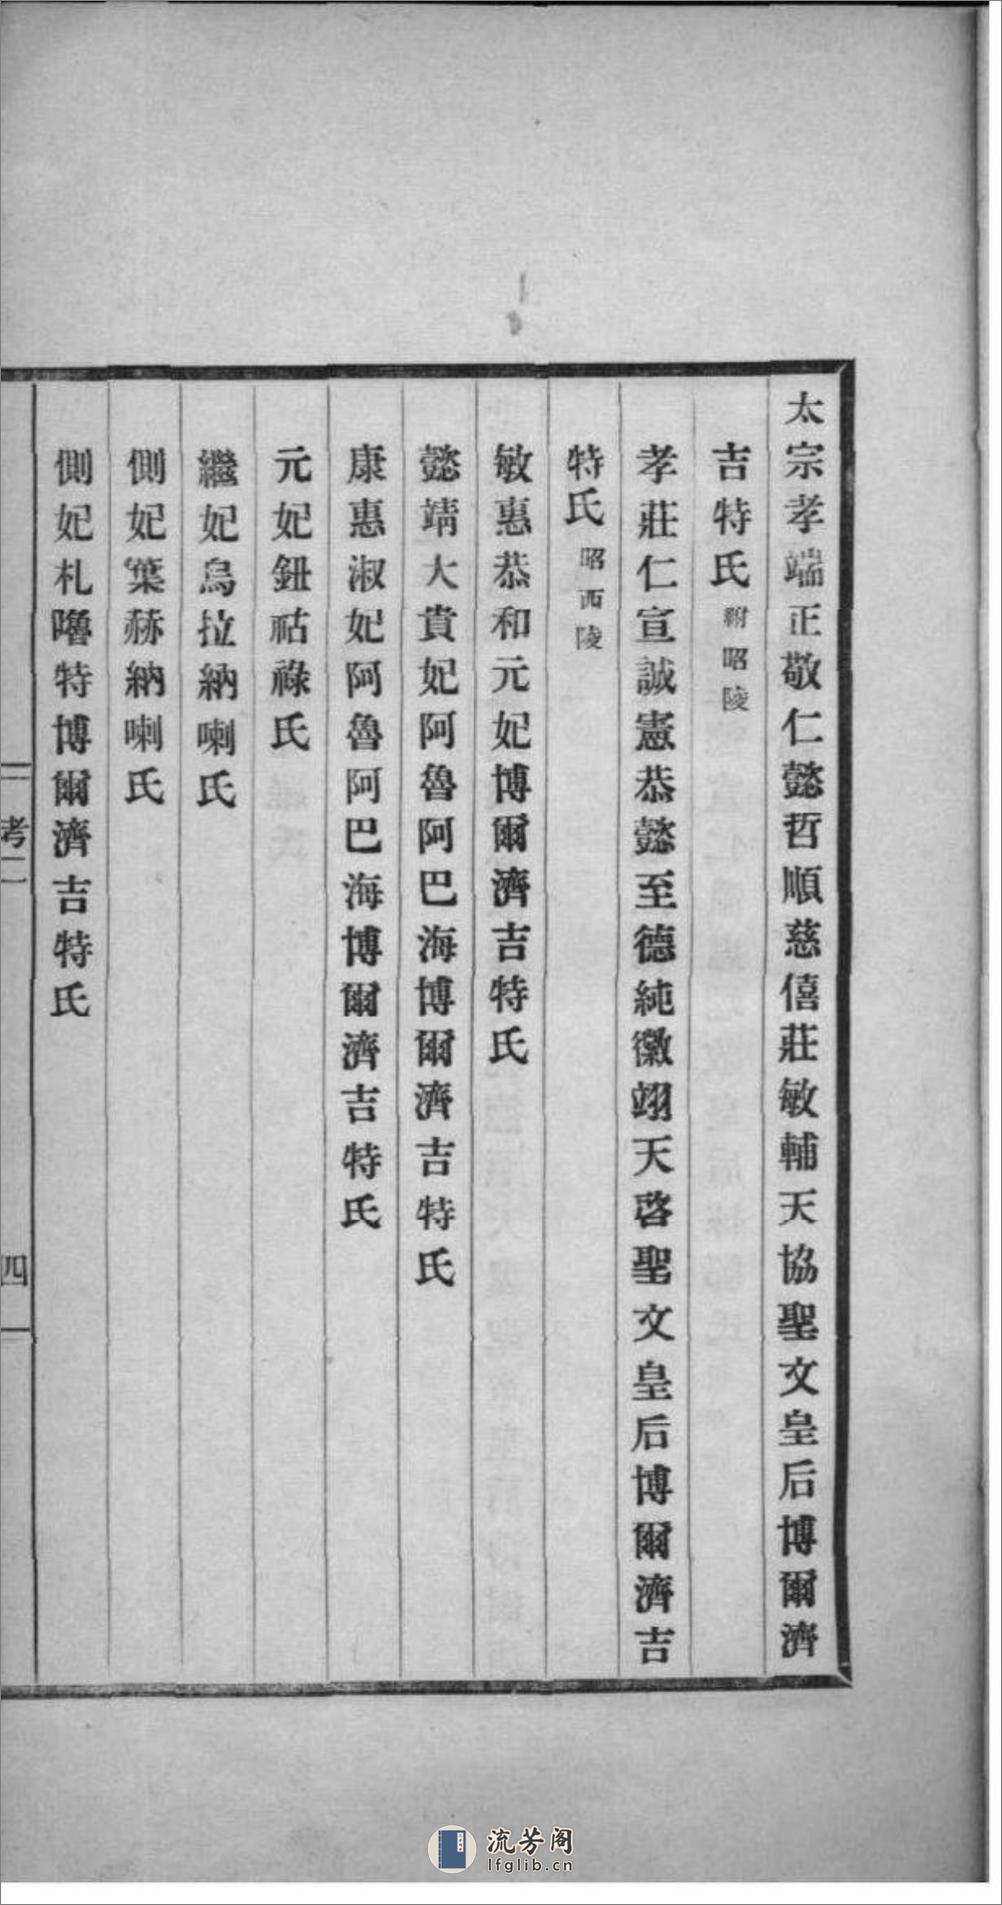 太宗孝端正敬仁懿哲順慈僖莊敏輔天協聖文皇后博爾濟
吉特氏祔昭陵
孝莊仁宣誠憲恭懿至德純徽翊天啓聖文皇后博爾濟吉
特氏昭西陵
敏惠恭和元妃博爾濟吉特氏
懿靖大貴妃阿魯阿巴海博爾濟吉特氏
康惠淑妃阿魯阿巴海博爾濟吉特氏
元妃鈕祜祿氏
繼妃烏拉納喇氏
側妃葉赫納喇氏
側妃札嚕特博爾濟吉特氏
考二
四
流芳阁
lfglib.cn